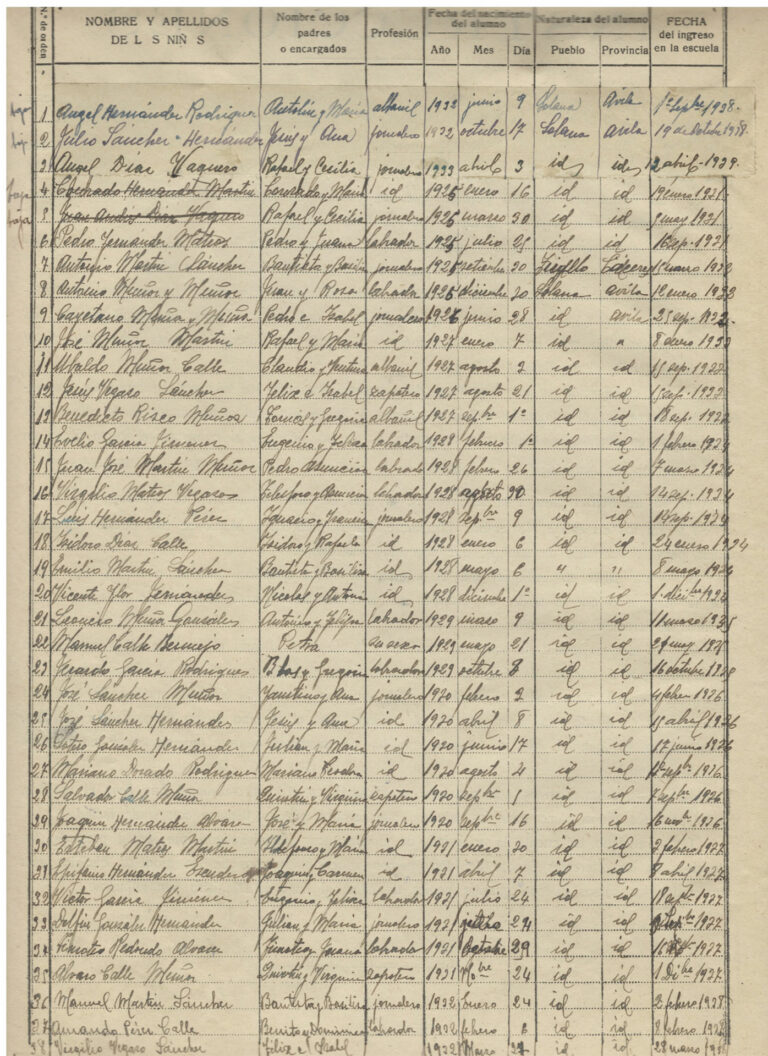 N.º de orden NOMBRE Y APELLIDOS DE L S NIÑ S Nombre de los padres o encargados Profesión Fecha del nacimiento del alumno Año Mes Día Naturaleza del alumno Pueblo Provincia FECHA del ingreso en la escuela
1 Angel Hernández Rodriguez Antolin y Maria albañil 1932 junio 9 Solana Avila 1º Sepbre 1938
2 Julio Sánchez Hernández Jesús y Ana jornalero 1932 octubre 17 Solana avila 19 de Octubre 1938
3 Angel Diaz Vaquero Rafael y Cecilia jornalero 1933 abril 3 id id 12 abril-1939
4 Coronado Hernandez Martin Coronado y Maria id 1925 enero 16 id id enero 1931
5 Juan Andrés Diaz Vaquero Rafael y Cecilia jornalero 1925 marzo 30 id id may 1931
6 Pedro Fernandez Mateos Pedro y Juana labrador 1925 julio 25 id id sep. 1931
7 Antonio Martin Sánchez Bautista y Basilisa jornalero 1925 setiembre 20 Trujillo Cáceres marzo 1932
8 Antonio Muñoz y Muñoz Juan y Rosa labrador 1925 diciembre 20 Solana avila enero 1933
9 Cayetano Muñoz y Muñoz Pedro e Isabel jornalero 1926 junio 28 id avila 25 sep. 1932
10 José Muñoz Martin Rafael y Maria id 1927 enero 7 id " 8 enero 1933
11 Ubaldo Muñoz Calle Claudio y Ventura albañil 1927 agosto 2 id id 15 sep. 1932
12 Jesús Vegazo Sánchez Felix e Isabel zapatero 1927 agosto 21 id id sep. 1933
13 Benedicto Risco Muñoz Tomas y Gregoria albañil 1927 sepbre 1º id id sep. 1933
14 Evelio Garcia Jimenez Eugenio y Felisa labrador 1928 febrero 1º id id 1 febrero 1934
15 Juan José Martin Muñoz Pedro Asuncion labrador 1928 febrero 26 id id 7 marzo 1934
16 Virgilio Mateos Vegazo Telesforo y Asuncion labrador 1928 agosto id id 14 sep. 1934
17 Luis Hernández Pérez Ignacio y Francisca jornalero 1928 sepbre 9 id id sep. 1934
18 Isidoro Diaz Calle Isidoro y Rafaela id 1928 enero 6 id id 24 enero 1934
19 Emilio Martin Sánchez Bautista y Basilisa id 1928 mayo 6 " " 8 mayo 1934
20 Vicente Flor Fernandez Nicolas y Antonia id 1928 diciembre 1º id id 1. dicbre 1934
21 Leoncio Muñoz González Antonio y Felipa labrador 1929 marzo 9 id id 11 marzo 1935
22 Manuel Calle Bermejo Petra su sexo 1929 mayo 21 id id may 1935
23 Gerardo García Rodrigues Blas y Gregoria labrador 1929 octubre 8 id id 16 octubre 1935
24 José Sanchez Muñoz Faustino y Ana jornalero 1930 febrero 2 id id 4 febro 1936
25 José Sanchez Hernández Jesús y Ana id 1930 abril 8 id id 15 abril 1936
26 Sotero González Hernández Julian y Maria id 1930 junio 17 id id 17 junio 1936
27 Mariano Dorado Rodriguez Mariano Teodora id 1930 agosto 4 id id sepbre 1936
28 Salvador Calle Muñoz Quintin y Virginia zapatero 1930 sepbre 1 id id sepbre 1936
29 Joaquin Hernández alvarez José y Maria jornalero 1930 sepbre 16 id id 1936
30 Esteban Mateos Martin Ildefonso y Maria id 1931 enero 20 id id 2 febrero 1937
31 Epifanio Hernández Joaquin y Carmen id 1931 abril 7 id id 8 abril 1937
32 Victor García Jimenez Eugenio y Felisa labrador 1931 julio 24 id id 18 sepbre 1937
33 Delfin González Hernandez Julian y Maria jornalero 1931 24 id id 1937
34 Timoteo Redondo Alvarez Timoteo y Juana labrador 1931 Octubre 29 id id 1937
35 Alvaro Calle Muñoz Quintin y Virginia zapatero 1931 Nobre 24 id id 1 Dibre 1937
36 Manuel Martin Sánchez Bautista y Basilisa jornalero 1932 enero 24 id id 2 febrero 1938
37 Armando Pérez Calle Benito y Dominica labrador 1932 febrero 6 id id febrero 1938
38 Virgilio Vegazo Sanchez Felix e Isabel 1932 Marzo 27 id id 28 marzo 1938